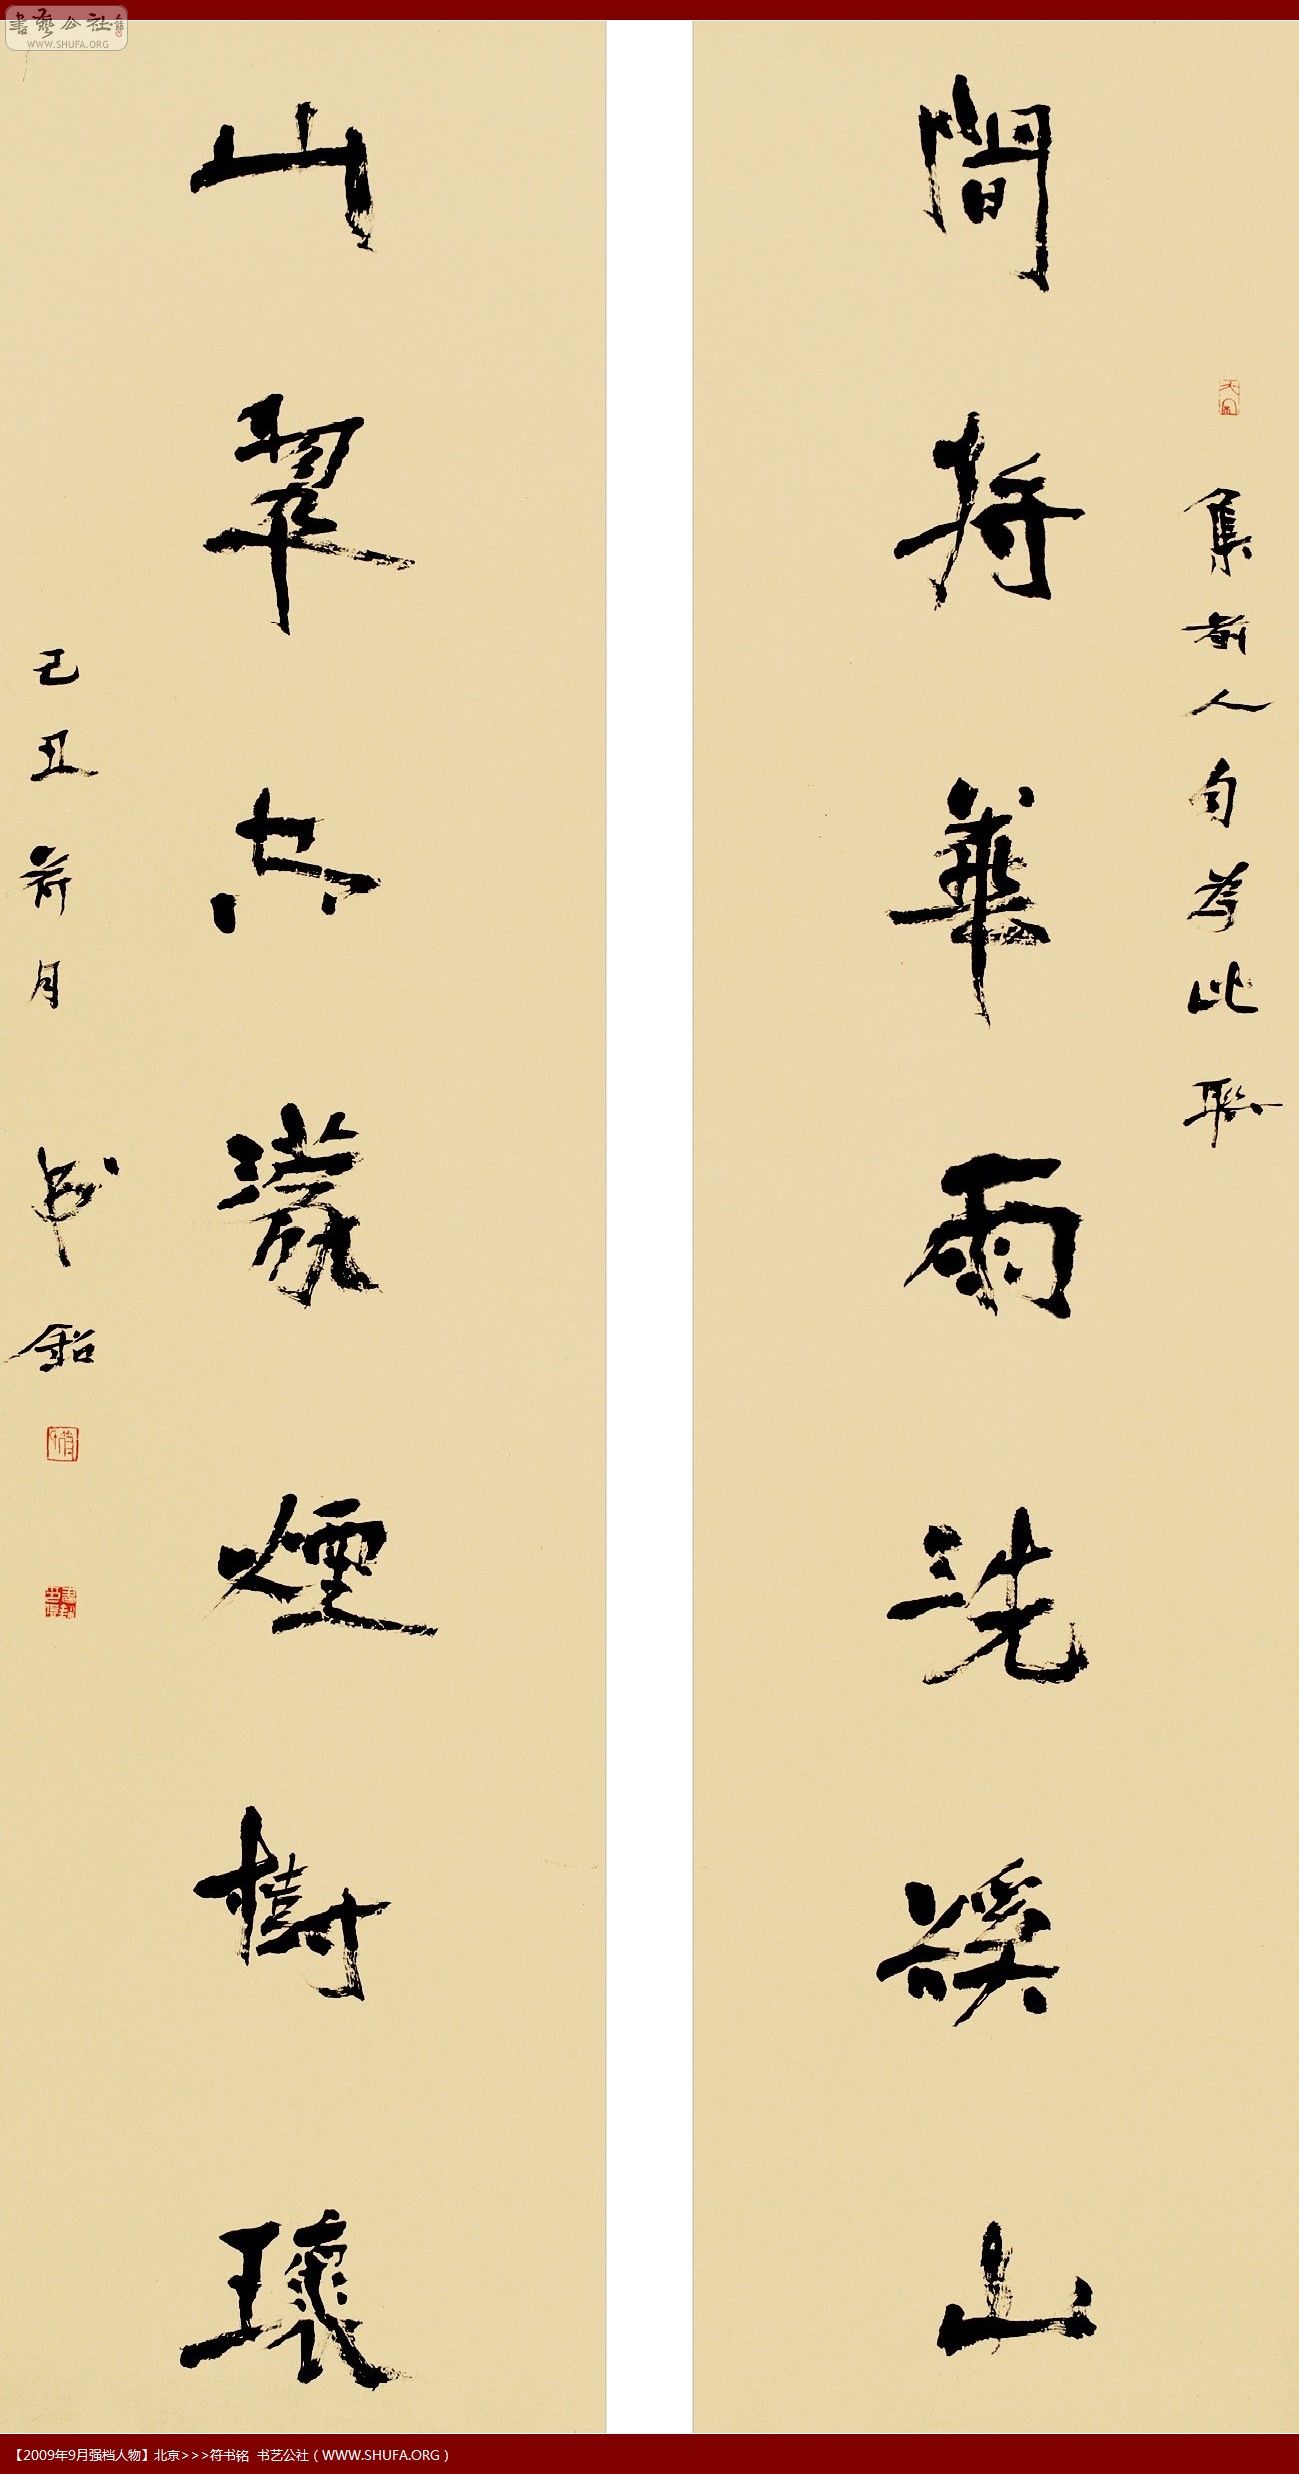 間将華雨洗谿山
集前人句为此聯
山翠空濛煙樹環
己丑荷月 书銘
書藝公社
WWW.SHUFA.ORG
【2009年9月强档人物】北京>>>符书铭 书艺公社（WWW.SHUFA.ORG）